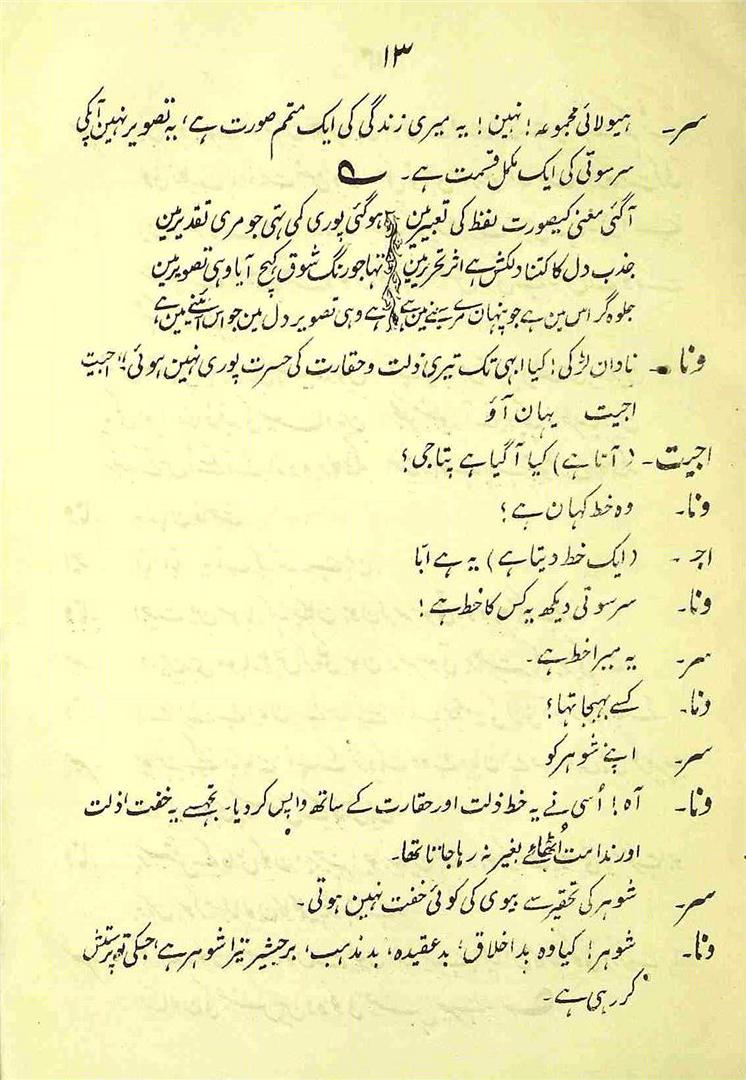 ۱۳
سر۔ ہیولائی مجموعہ! نہین! یہ میری زندگی کی ایک متمم صورت ہے، یہ تصویر نہین آپکی
سرسوتی کی ایک مکمل قسمت ہے۔
آگئی معنی کیصورت لفظ کی تعبیر مین ہوگئی پوری کمی تہی جو مری تقدیر مین
جذب دل کا کتنا دلکش ہے اثر تحریر مین تہا جو رنگ شوق کہچ آیا وہی تصویر مین
جلوہ گر اس مین ہے جو پنہان مرے سینے مین ہے ہے وہی تصویر دل مین جو اس آئنے مین ہے
ونا۔ نادان لڑکی! کیا ابہی تک تیری ذلت و حقارت کی حسرت پوری نہین ہوئی۔ اجیت
اجیت یہان آؤ
اجیت۔ (آتا ہے) کیا آگیا ہے پتاجی؟
ونا۔ وہ خط کہان ہے؟
اجـ۔ (ایک خط دیتا ہے) یہ ہے ابّا
ونا۔ سرسوتی دیکھ یہ کس کا خط ہے!
سر۔ یہ میرا خط ہے۔
ونا۔ کسے بہیجا تہا؟
سر۔ اپنے شوہر کو
ونا۔ آہ! اُسی نے یہ خط ذلت اور حقارت کے ساتھ واپس کر دیا۔ تجہسے یہ خفت اذلت
اور ندامت اُٹھائے بغیر نہ رہا جاتا تھا۔
سر۔ شوہر کی تحقیر سے بیوی کی کوئی خفت نہین ہوتی۔
ونا۔ شوہر! کیا وہ بد اخلاق، بد عقیدہ، بد مذہب، برجیشر تیرا شوہر ہے، جسکی تو پرستش
کر رہی ہے۔